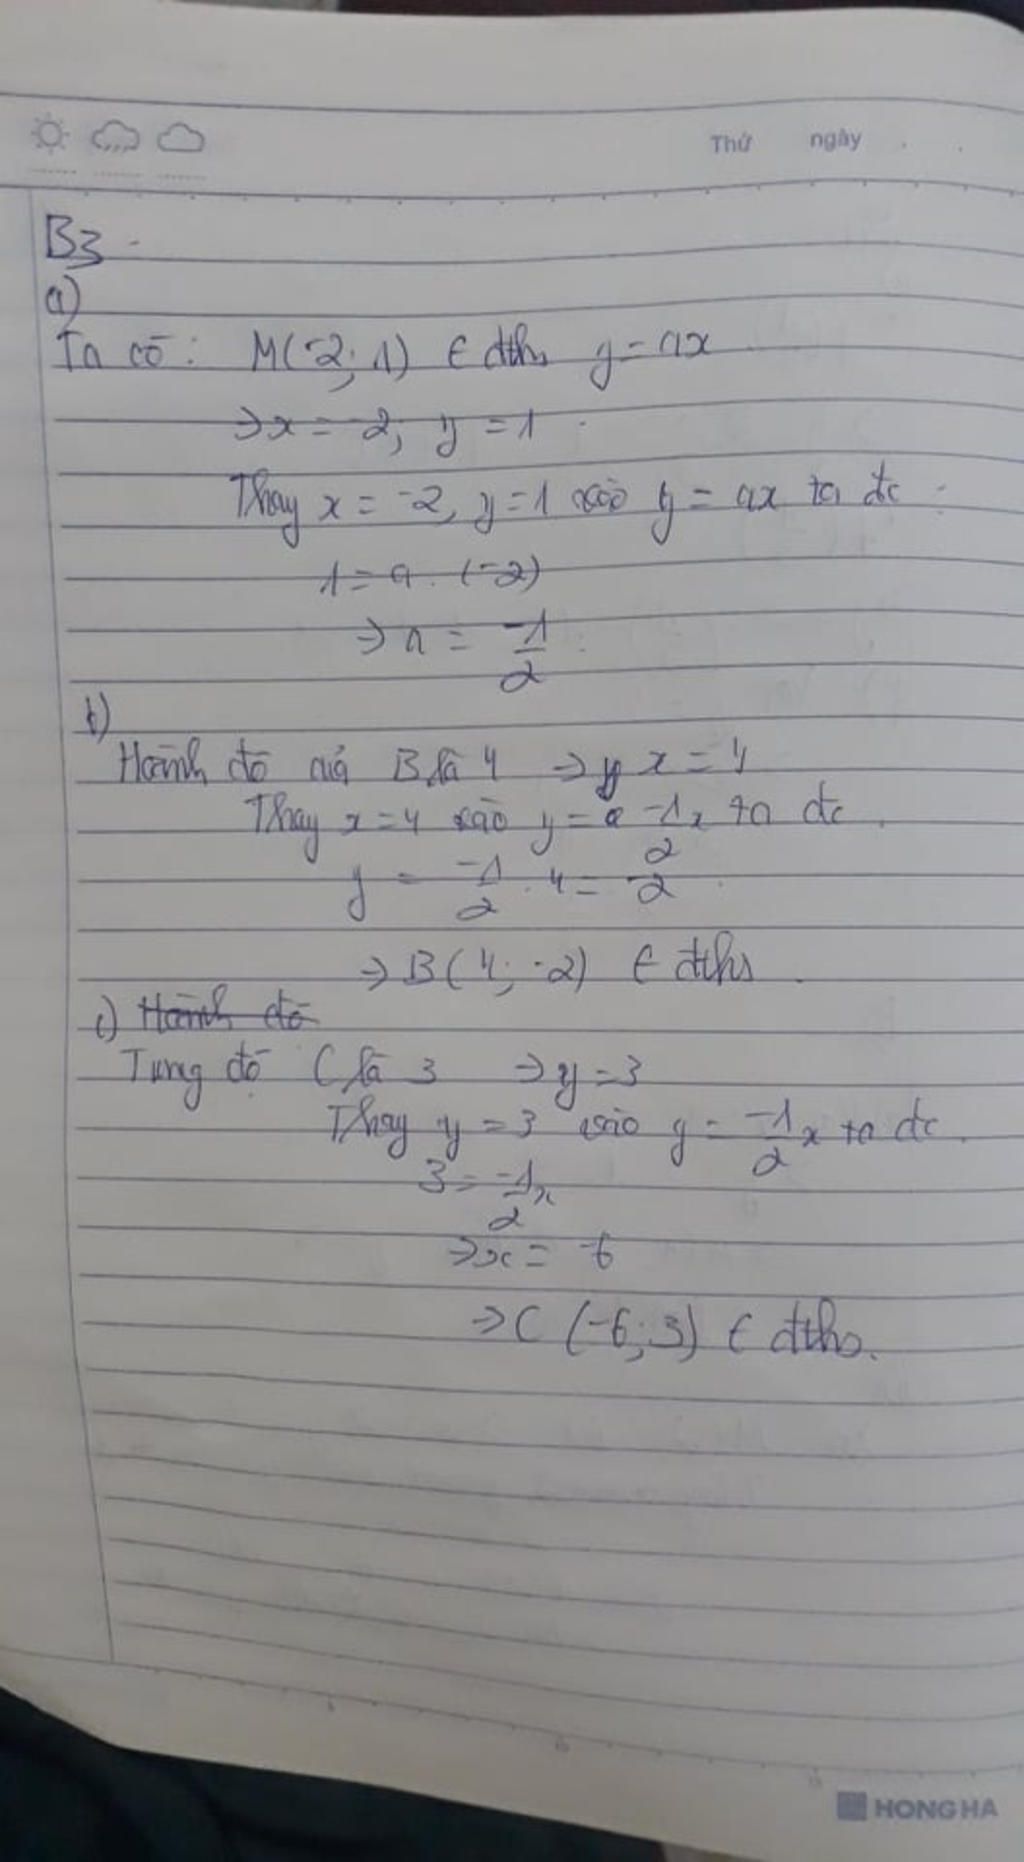 Thứ ngày
B3
a)
Ta có: M(-2; 1) ∈ đths y = ax
⇒ x = -2; y = 1
Thay x = -2, y = 1 vào y = ax ta đc
1 = a . (-2)
⇒ a = -1/2
b)
Hoành độ của B là 4 ⇒ x = 4
Thay x = 4 vào y = -1/2 x ta đc
y = -1/2 . 4 = -2
⇒ B(4; -2) ∈ đths
c) Hoành độ
Tung độ C là 3 ⇒ y = 3
Thay y = 3 vào y = -1/2 x ta đc
3 = -1/2 x
⇒ x = -6
⇒ C (-6; 3) ∈ đths.
HONG HA